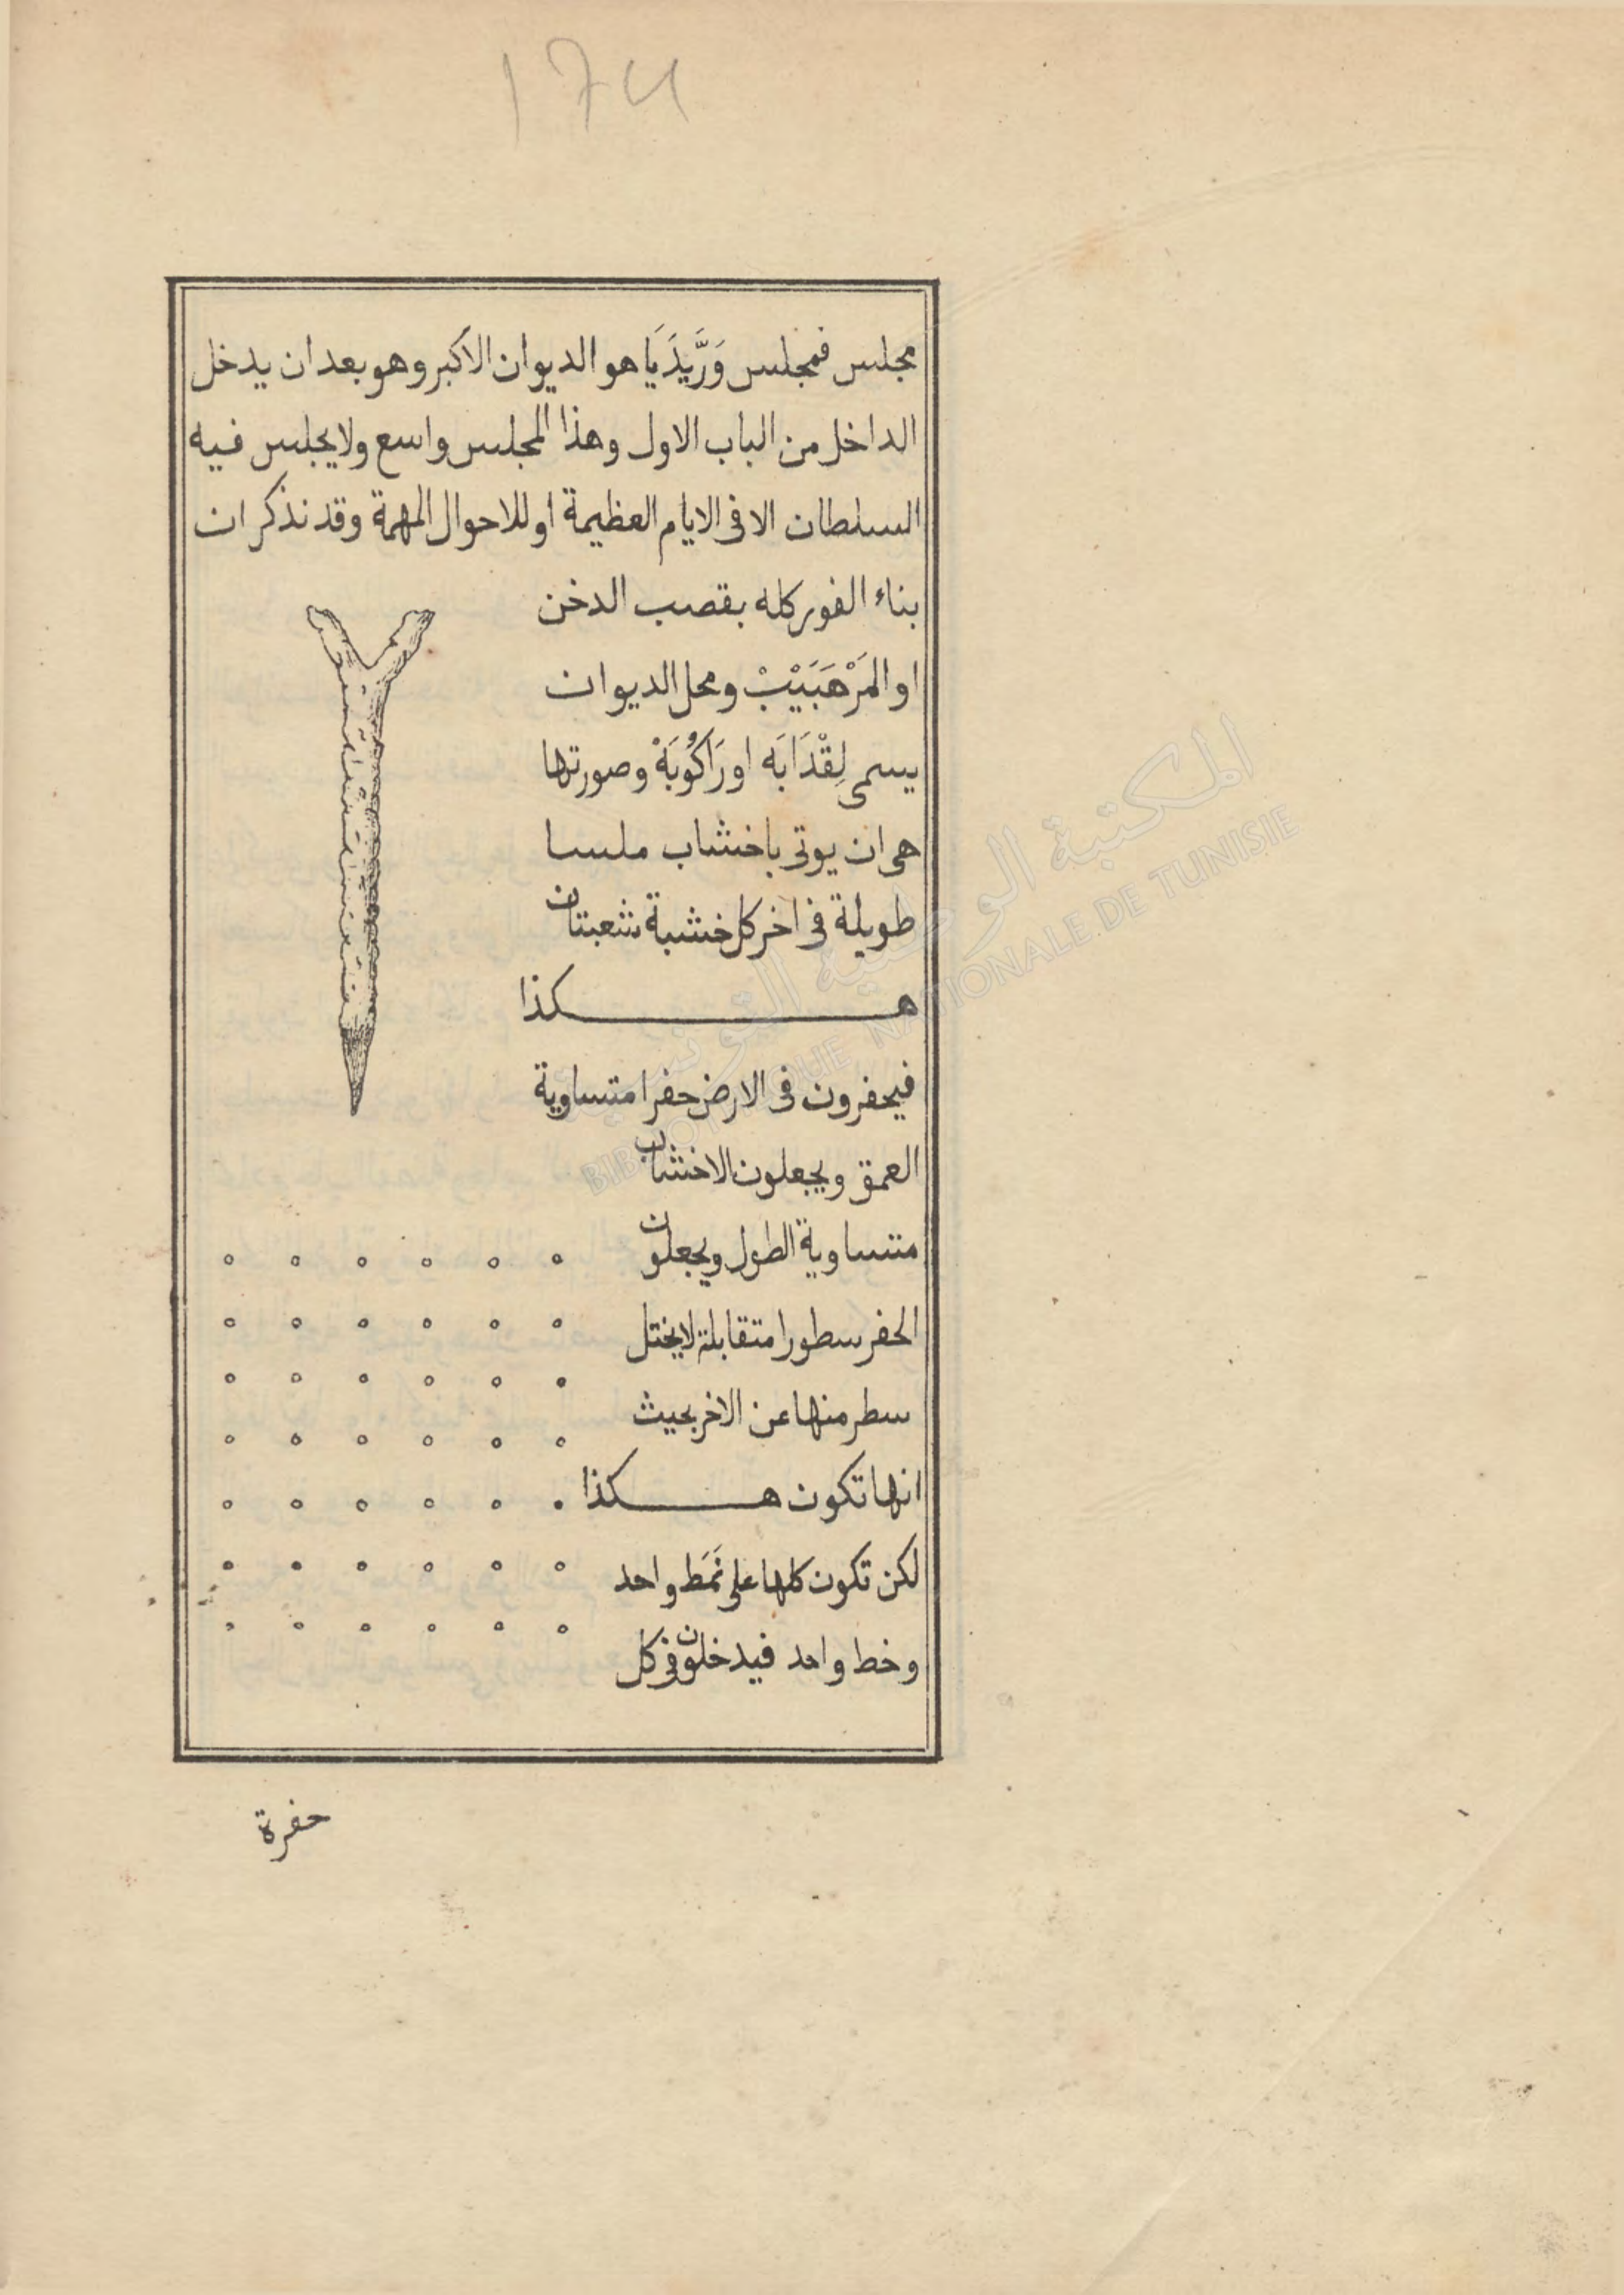 174
مجلس فمجلس وَرَّيدَيَا هو الديوان الاكبر وهو بعد ان يدخل
الداخل من الباب الاول وهذا المجلس واسع ولا يجلس فيه
السلطان الا فى الايام العظيمة او للاحوال المهمة وقد نذكر ان
بناء الفور كله بقصب الدخن
او المَرْهَبَيْبْ ومحل الديوان
يسمى لِقْدَابَه او رَاكُوبَةْ وصورتها
هى ان يوتى باخشاب ملسا
طويلة فى اخر كل خشبة شعبتان
هكذا
فيحفرون فى الارض حفرا متساوية
العمق ويجعلون الاخشاب
متساوية الطول ويجعلون
الحفر سطورا متقابلة لا يختل
سطر منها عن الاخر بحيث
انها تكون هكذا
لكن تكون كلها على نَمَط واحد
وخط واحد فيدخلون فى كل
حفرة
المكتبة الوطنية التونسية
BIBLIOTHEQUE NATIONALE DE TUNISIE